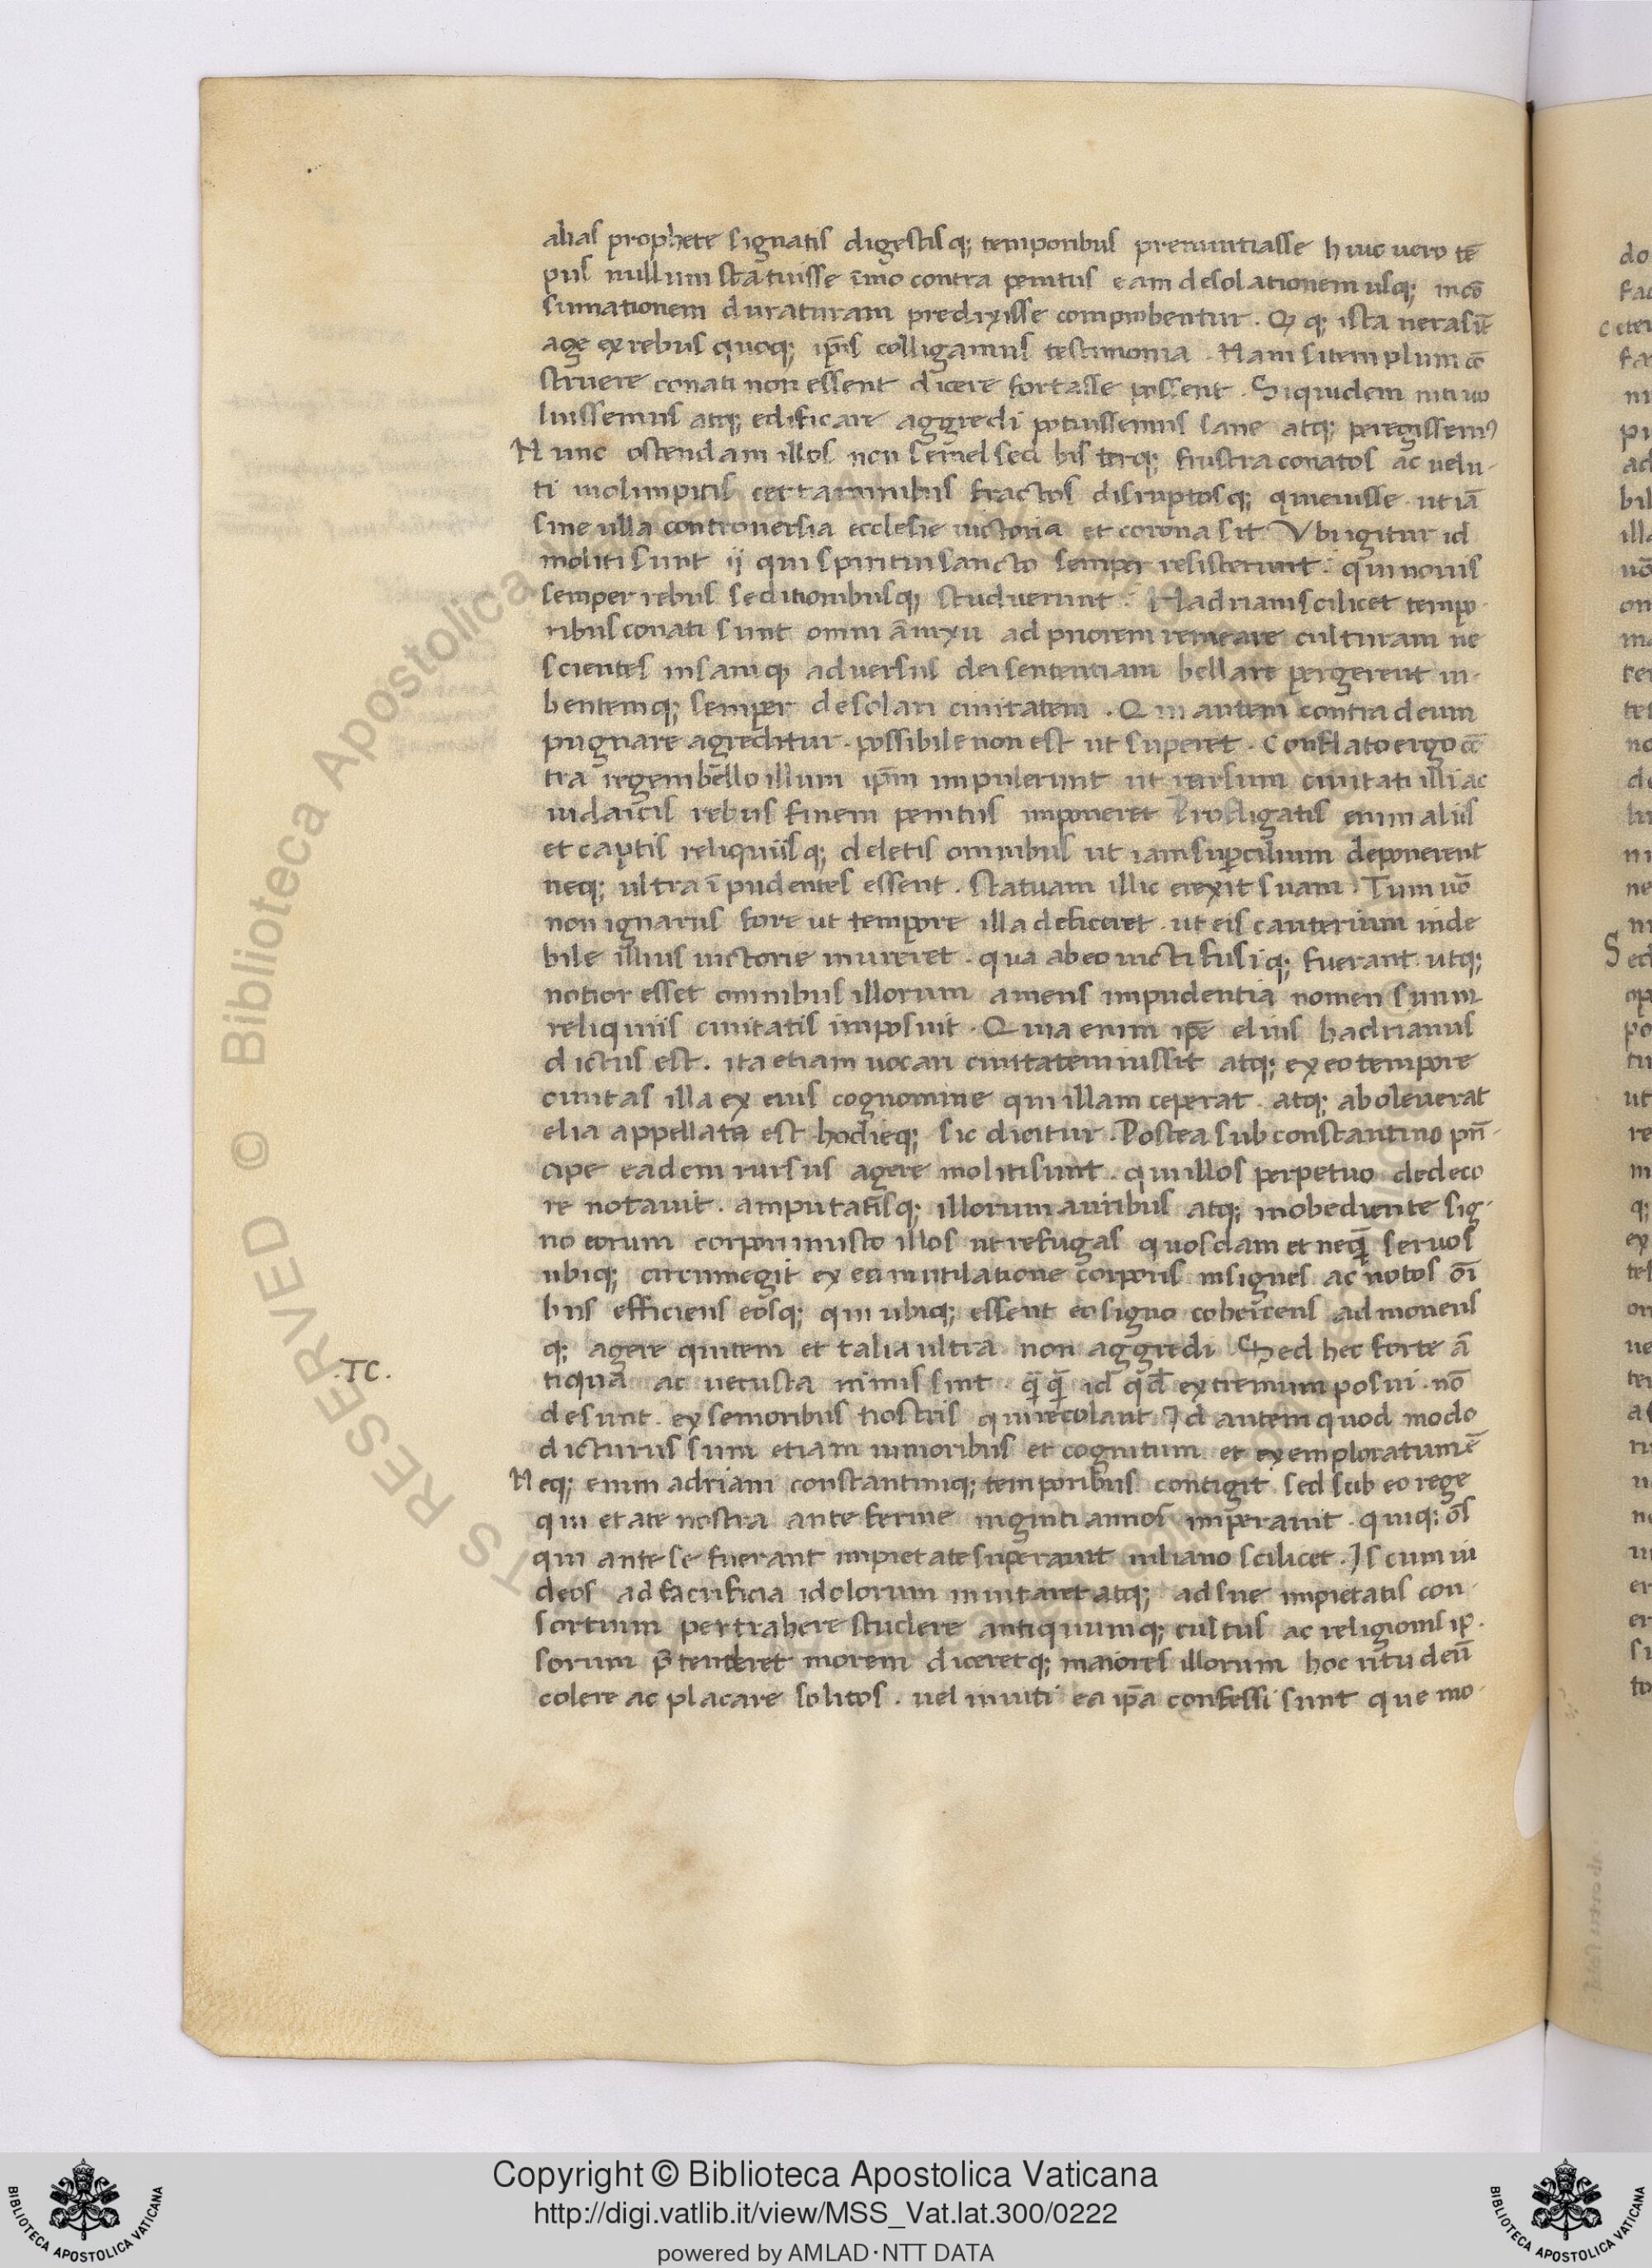 alias prophete signatis digestisq; temporibus prenuntiasse huic uero tē
pus nullum statuisse īmo contra penitus eam desolationem usq; in cō
sumationem duraturam predixisse comprobentur. Q q; ista uera sūt
age ex rebus quoq; ip̄is colligamus testimonia. Nam si templum cō
struere conati non essent dicere fortasse possent. Siquidem niti uo
luissemus atq; edificare aggredi potuissemus sane atq; peregissem9
Nunc ostendam illos non semel sed bis terq; frustra conatos ac uelu-
ti in olimpicis certaminibus fractos disruptosq; quieuisse. ut iā
sine ulla controuersia ecclesie uictoria et corona sit. Vbi igitur id
moliti sunt ij qui spiritui sancto semper resisterunt. qui nouis
semper rebus seditionibusq; studuerunt. Hadriani scilicet tempo-
ribus conati sunt omni ānixu ad priorem remeare culturam ne
scientes insaniq; aduersus dei sententiam bellare pergerent iu-
bentemq; semper desolari ciuitatem. Qui autem contra deum
pugnare agreditur. possibile non est ut superet. Conflato ergo cō
tra regem bello illum ip̄m impulerunt ut rursum ciuitati illi ac
iudaicis rebus finem penitus imponeret Profligatis enim aliis
et captis reliquiisq; deletis omnibus ut iam supercilium deponerent
neq; ultra īpudentes essent. Statuam illic erexit suam. Tum uō
non ignarus fore ut tempore illa deficeret. ut eis cauterium inde
bile illius uictorie inureret. qua ab eo uicti fusiq; fuerant. utq;
notior esset omnibus illorum amens impudentia nomen suum
reliquiis ciuitatis imposuit. Quia enim ip̄e elius hadrianus
dictus est. ita etiam uocari ciuitatem iussit atq; ex eo tempore
ciuitas illa ex eius cognomine qui illam ceperat. atq; aboleuerat
elia appellata est hodieq; sic dicitur. Postea sub constantino prī-
cipe eadem rursus agere moliti sunt. qui illos perpetuo dedeco
re notauit. amputatisq; illorum auribus atq; inobediente sig-
no eorum corpori inusto illos ut refugas quosdam et neq̄ seruos
ubiq; circumegit ex ea mutilatione corporis insignes ac notos oī
bus efficiens eosq; qui ubiq; essent eo signo cohercens admonens
q; agere quitem et talia ultra non aggredi. Sed hec forte ā
.TC.
tiqua ac uetusta nimis sint. q̄q̄ id qd̄ extremum posui. nō
desunt. ex senioribus nostris qui recolant. Id autem quod modo
dicturus sum etiam iunioribus et cognitum et exemploratum ē
Neq; enim adriani constantiniq; temporibus contigit. sed sub eo rege
qui etate nostra ante ferme uiginti annos imperauit. quiq; oēs
qui ante se fuerant impietate superauit iuliano scilicet. Is cum iu
deos ad sacrificia idolorum inuitaret atq; ad sue impietatis con-
sortium pertrahere studere antiquumq; cultus ac religionis ip-
sorum p̄tenderet morem diceretq; maiores illorum hoc ritu deū
colere ac placare solitos. uel inuiti ea ip̄a confessi sunt que mo-
Copyright © Biblioteca Apostolica Vaticana
http://digi.vatlib.it/view/MSS_Vat.lat.300/0222
powered by AMLAD·NTT DATA